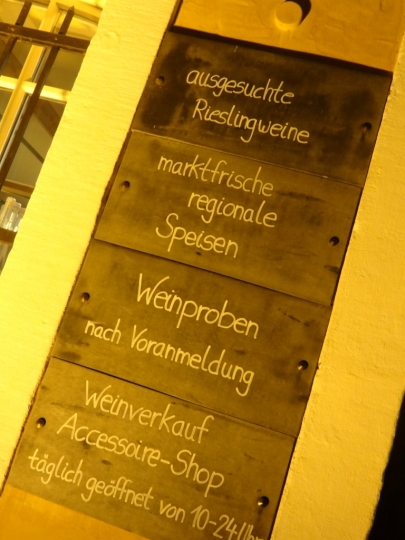 ausgesuchte
Rieslingweine
marktfrische
regionale
Speisen
Weinproben
nach Voranmeldung
Weinverkauf
Accessoire-Shop
täglich geöffnet von 10-24 Uhr